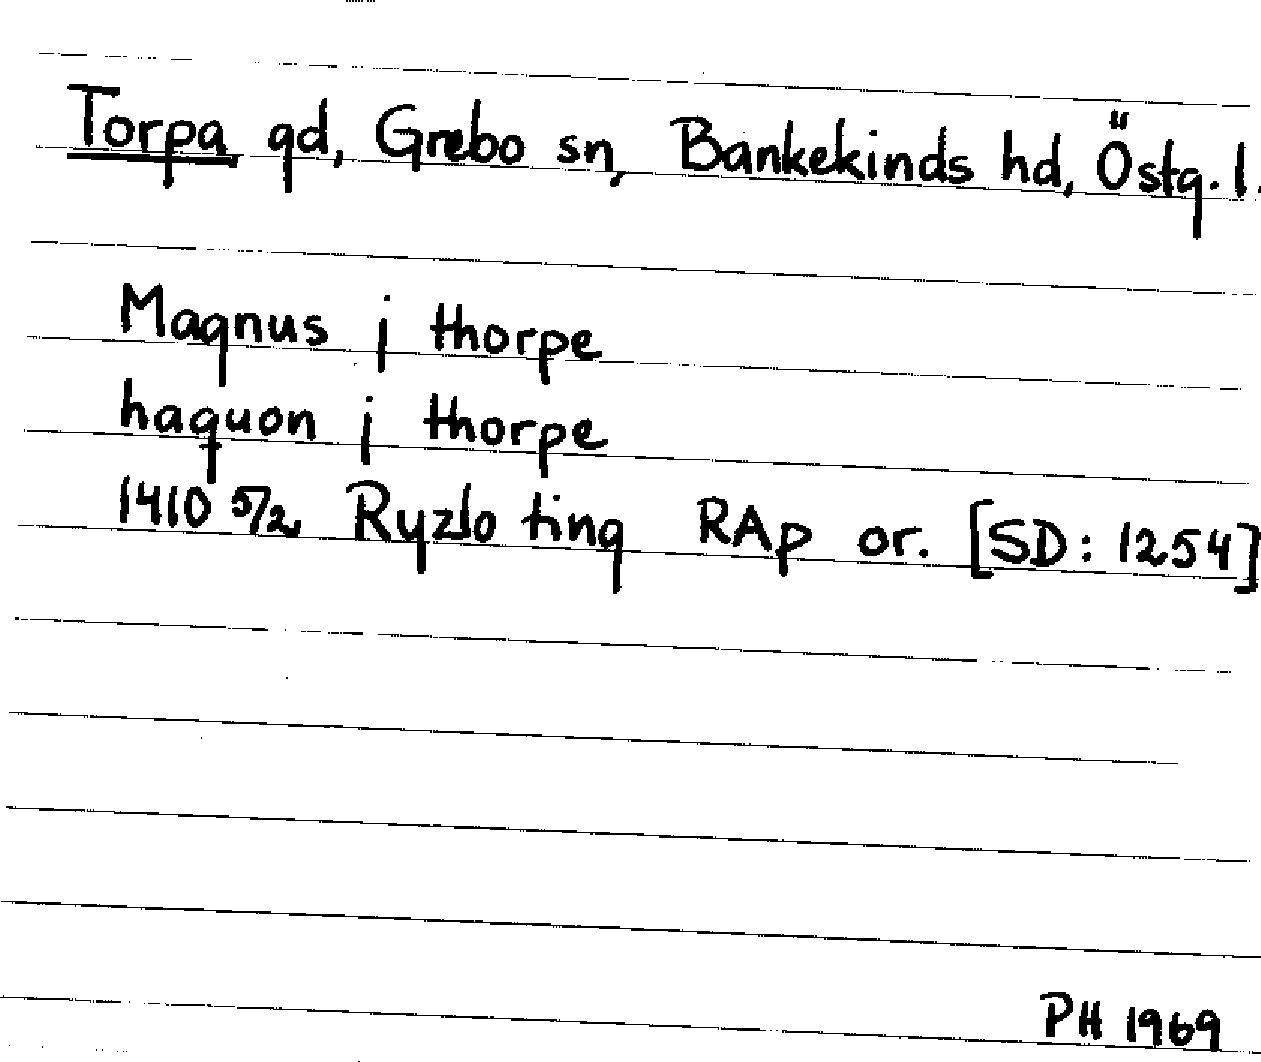 Torpa gd, Grebo sn, Bankekinds hd, Östg. l.
Magnus j thorpe
haquon j thorpe
1410 5/2, Ryzlo ting RAp or. [SD: 1254]
PH 1969